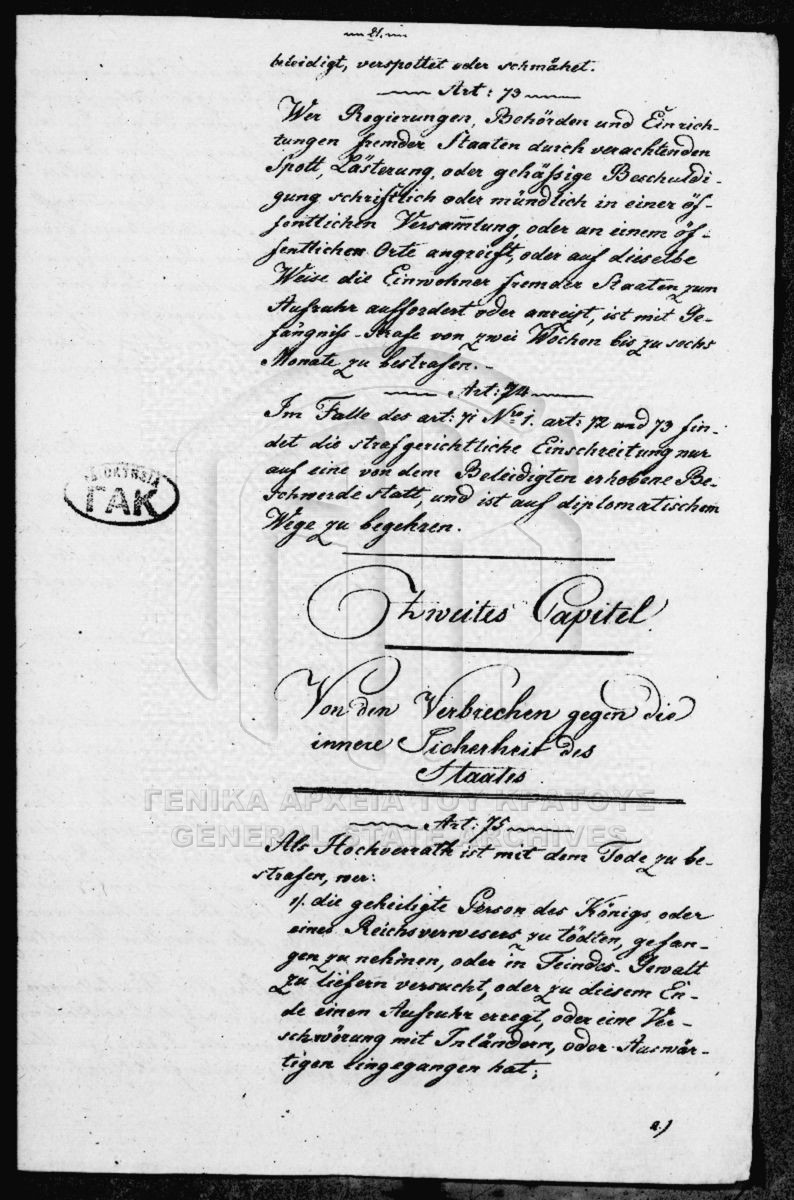 21.
beleidigt, verspottet oder schmähet.
Art: 73
Wer Regierungen, Behörden und Einrich-
tungen fremder Staaten durch verachtenden
Spott, Lästerung, oder gehäßige Beschuldi-
gung schriftlich oder mündlich in einer öf-
fentlichen Versam̅lung, oder an einem öf-
fentlichen Orte angreift, oder auf dieselbe
Weise die Einwohner fremder Staaten zum
Aufruhr auffordert oder anreizt, ist mit Ge-
fängniß-Strafe von zwei Wochen bis zu sechs
Monate zu bestrafen.
Art: 74
Im Falle des art: 71 Nro 1. art: 72 und 73 fin-
det die strafgerichtliche Einschreitung nur
auf eine von dem Beleidigten erhobene Be-
schwerde statt, und ist auf diplomatischem
Wege zu begehren.
ΓΑΚ
Zweites Capitel.
Von den Verbrechen gegen die
innere Sicherheit des
Staates.
ΓΕΝΙΚΑ ΑΡΧΕΙΑ ΤΟΥ ΚΡΑΤΟΥΣ
GENERAL STATE ARCHIVES
Art: 75
Als Hochverrath ist mit dem Tode zu be-
strafen, wer:
1) die geheiligte Person des Königs, oder
eines Reichsverwesers zu tödten, gefan-
gen zu nehmen, oder in Feindes-Gewalt
zu liefern versucht, oder zu diesem En-
de einen Aufruhr erregt, oder eine Ver-
schwörung mit Inländern, oder Auswär-
tigen eingegangen hat;
2.)